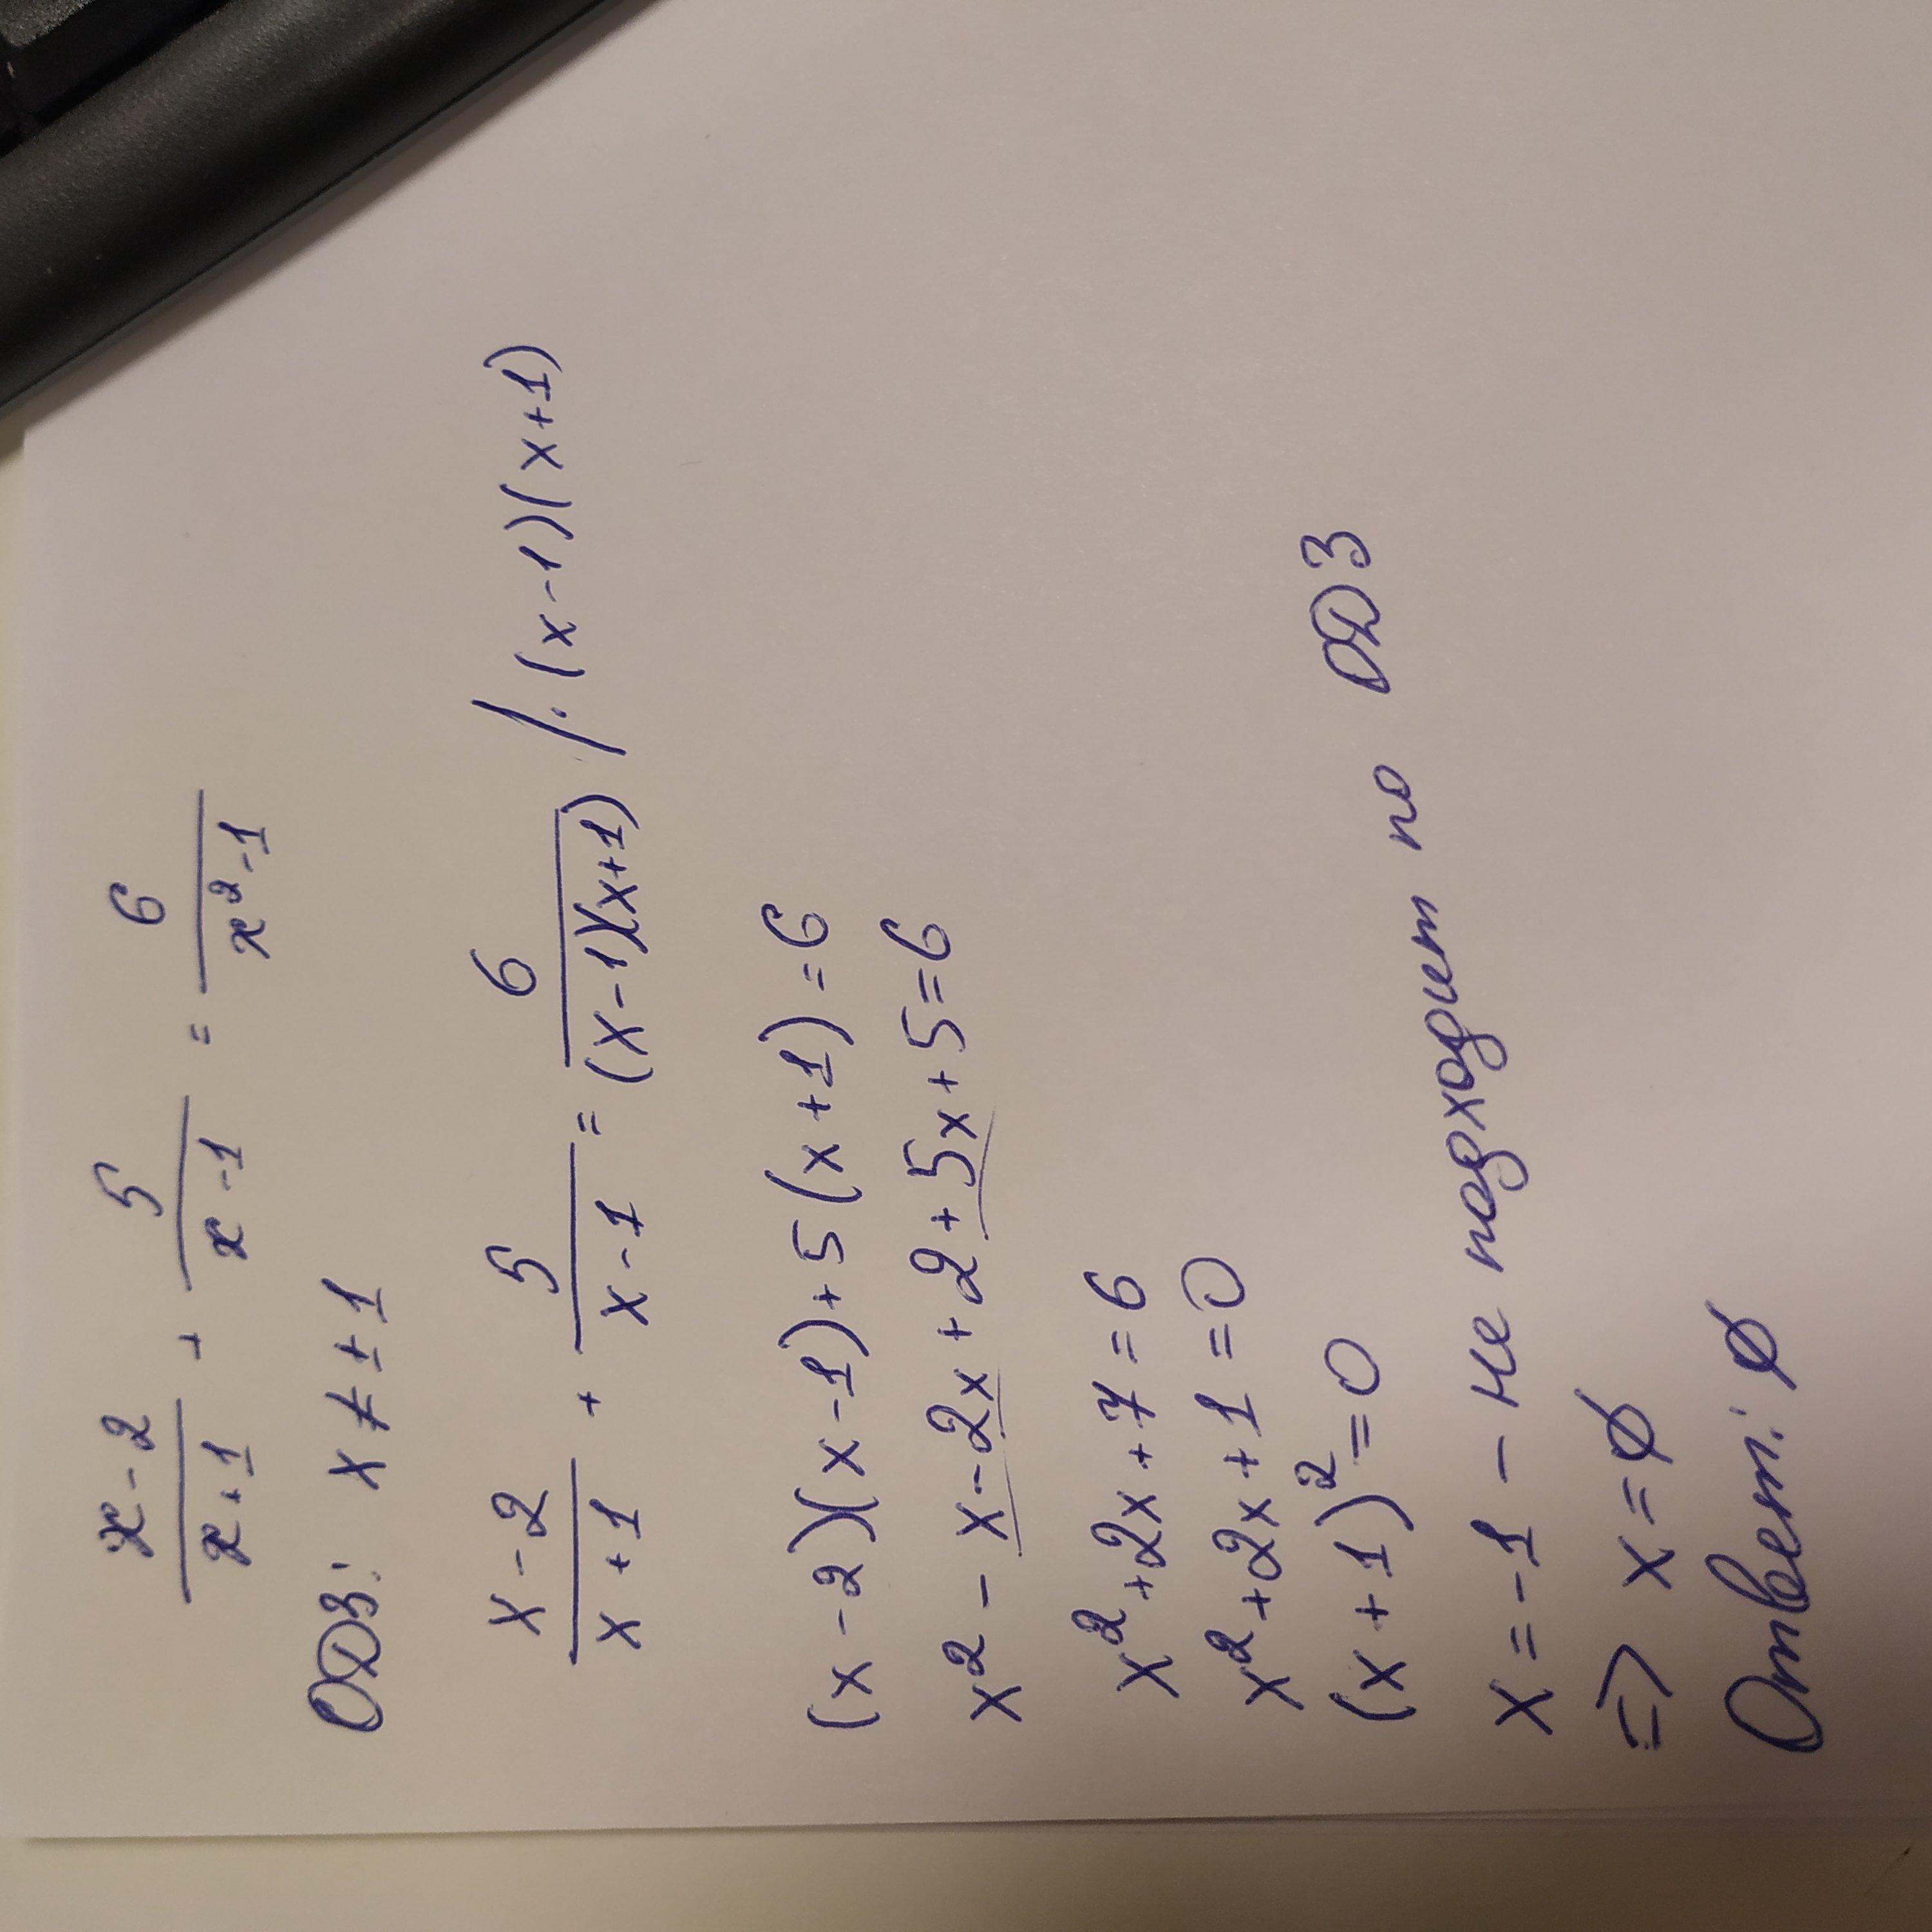 (x-2)/(x+1) + 5/(x-1) = 6/(x²-1)
ОДЗ: x ≠ ±1
(x-2)/(x+1) + 5/(x-1) = 6/((x-1)(x+1)) /·(x-1)(x+1)
(x-2)(x-1)+5(x+1)=6
x²-x-2x+2+5x+5=6
x²+2x+7=6
x²+2x+1=0
(x+1)²=0
x=-1 - не подходит по ОДЗ
=> x=∅
Ответ: ∅